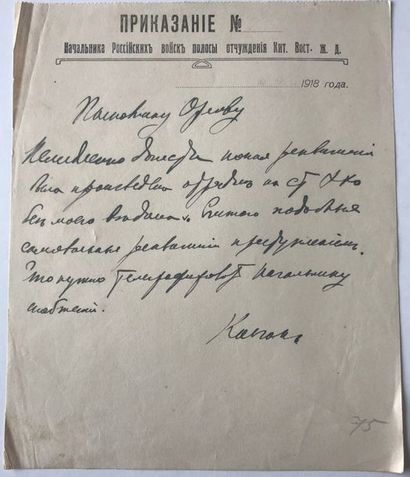 ПРИКАЗАНІЕ №
Начальника Россійскихъ войскъ полосы отчужденія Кит. Вост. ж. д.
1918 года.
Полковнику Орлову
Немедленно донести какая реквизиція
была произведена отрядомъ на ст.
безъ моего вѣдома. Считаю подобныя
самовольныя реквизиціи преступленіемъ.
Что нужно телеграфировать начальнику
снабженія.
Колчакъ
75